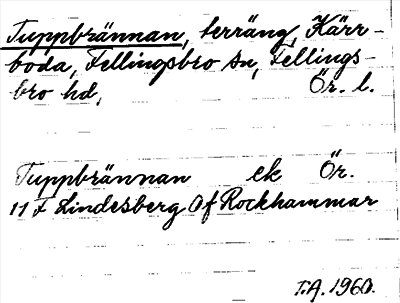 Tuppbrännan, terräng, Kärr-
boda, Fellingsbro sn, Fellings-
bro hd, Ör. l.
Tuppbrännan ek Ör.
11 F Lindesberg Of Rockhammar
T.A. 1960.